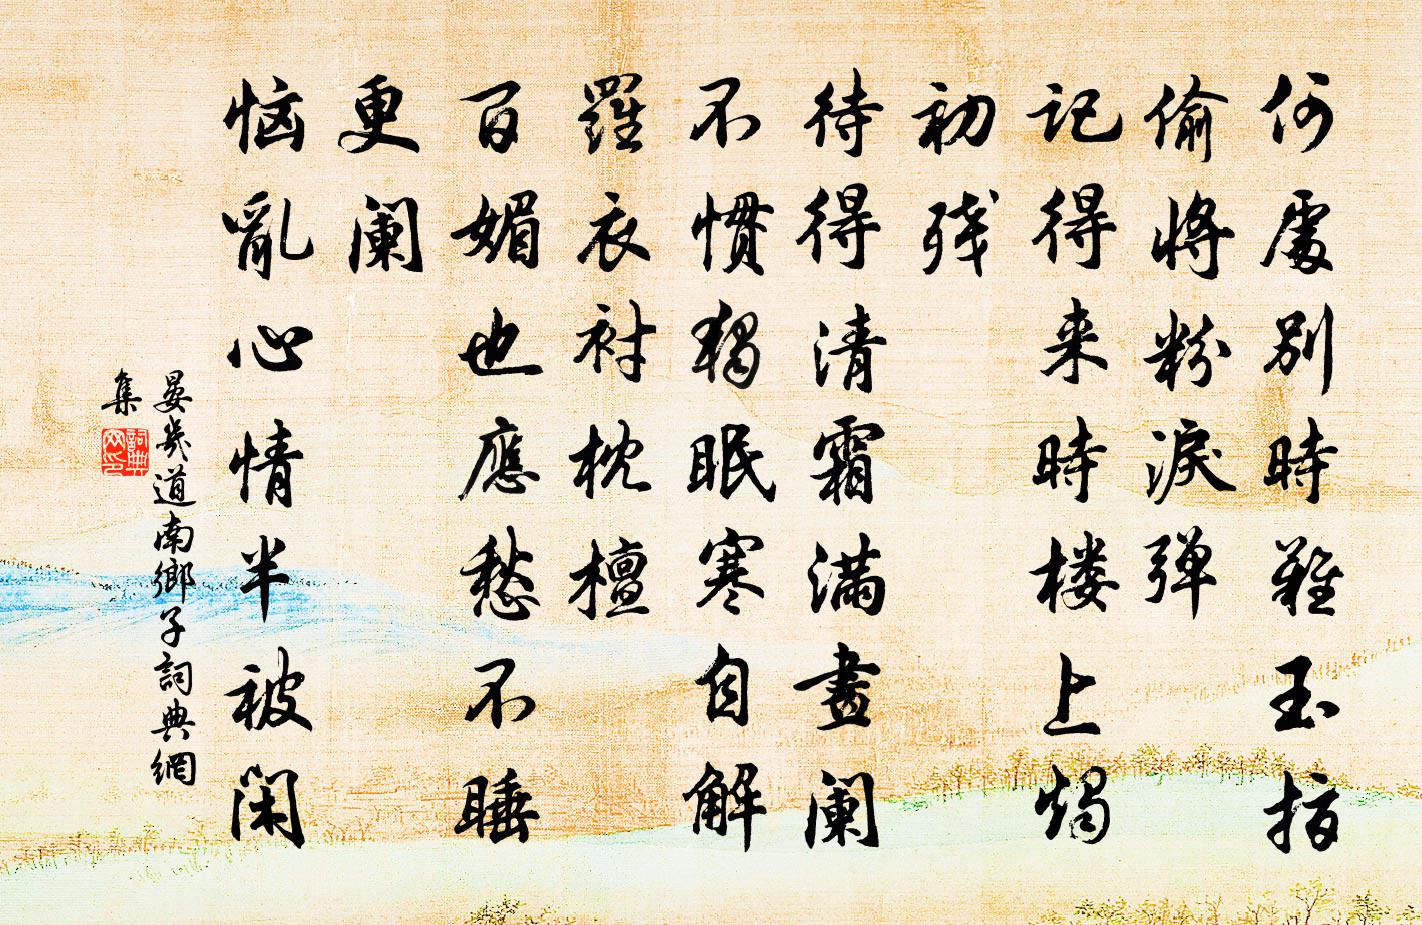 何處別時難玉指
偷將粉淚弹
記得来時楼上燭
初残
待得清霜滿畫阑
不慣獨眠寒自解
羅衣衬枕檀
百媚也應愁不睡
更阑
恼亂心情半被闲
晏幾道南鄉子詞典網
集
詞典
网印